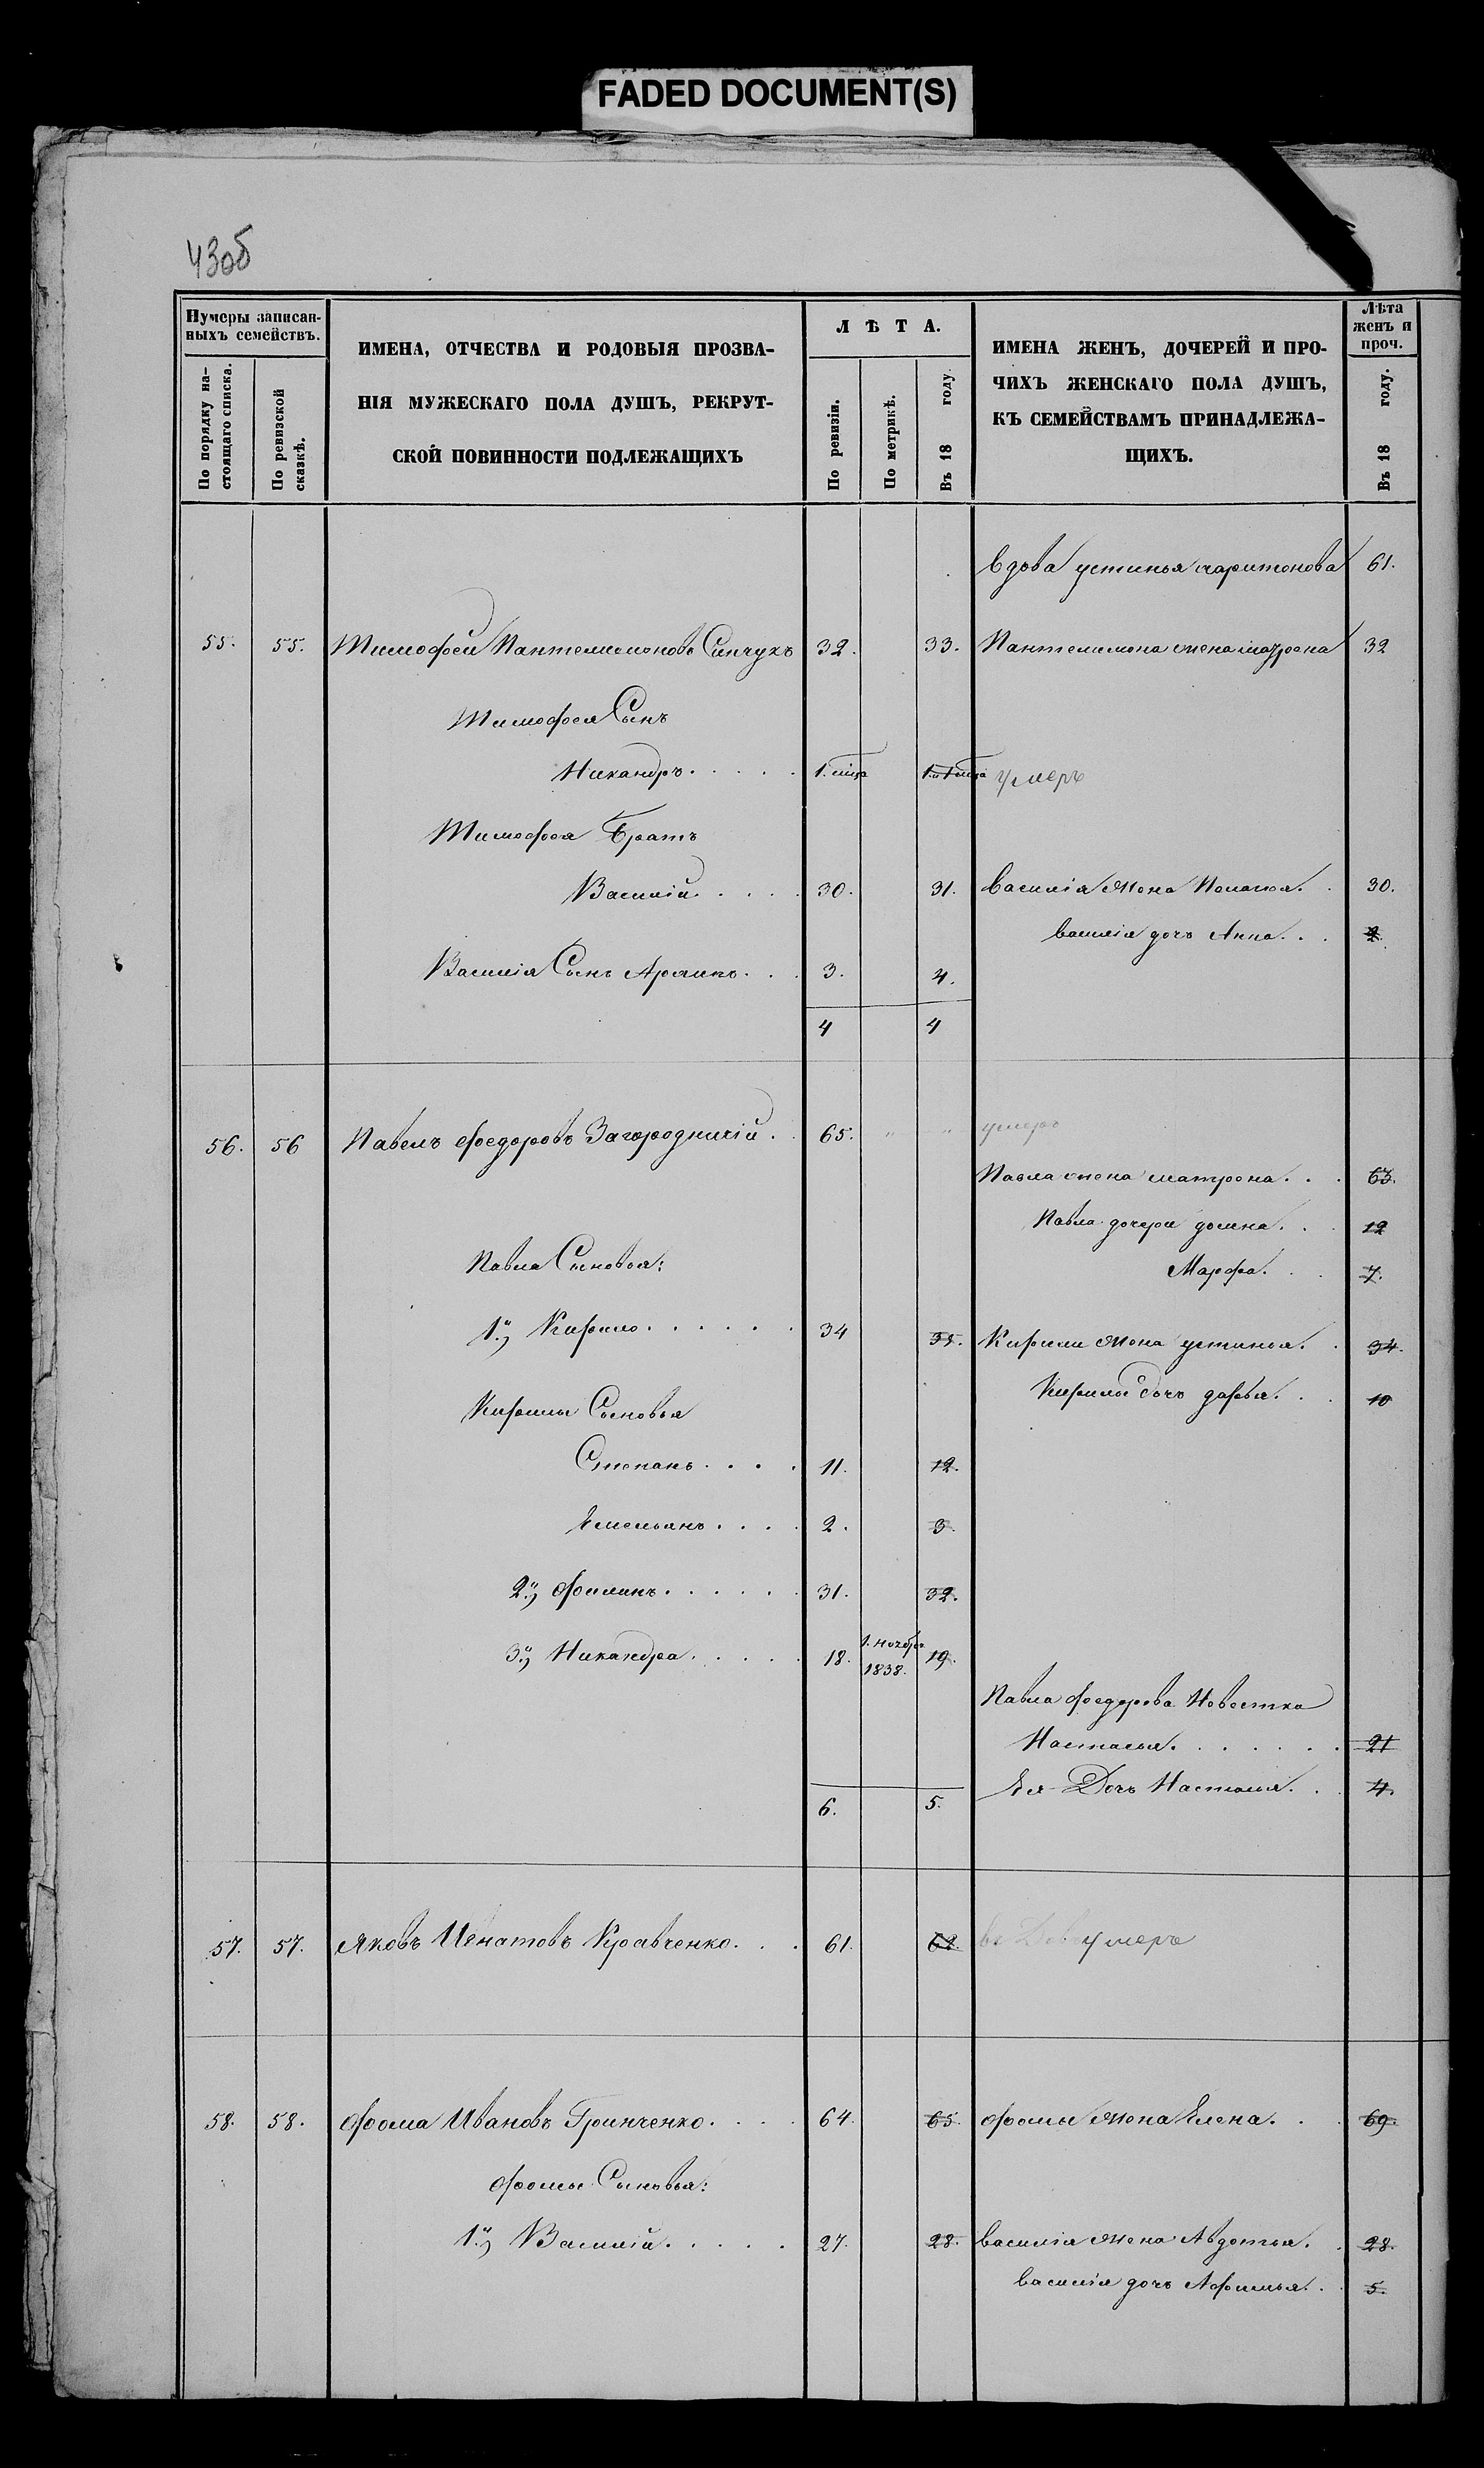 FADED DOCUMENT(S)
43об
Нумеры записан-
ныхъ семействъ.
По порядку на-
стоящаго списка.
По ревизской
сказкѣ.
ИМЕНА, ОТЧЕСТВА И РОДОВЫЯ ПРОЗВА-
НІЯ МУЖЕСКАГО ПОЛА ДУШЪ, РЕКРУТ-
СКОЙ ПОВИННОСТИ ПОДЛЕЖАЩИХЪ
ЛѢТА.
По ревизіи.
По метрикѣ.
Въ 18 году.
ИМЕНА ЖЕНЪ, ДОЧЕРЕЙ И ПРО-
ЧИХЪ ЖЕНСКАГО ПОЛА ДУШЪ,
КЪ СЕМЕЙСТВАМЪ ПРИНАДЛЕЖА-
ЩИХЪ.
Лѣта
женъ и
проч.
Въ 18 году.
Вдова устинья харитонова 61.
55. 55. Тимофей Пантелимоновъ 32. 33. Пантелимона жена 32
Тимофея Сынъ
Никандръ 1. мца умеръ
Тимофея Братъ
Василій 30. 31. Василія жена Пелагея 30.
василія дочь Анна 2.
Василія Сынъ 3. 4.
4 4
56. 56 Павелъ Федоровъ Загородничій 65. " " умеръ
Павла жена матрона 63.
Павла дочери домна 12
Марфа 7.
Павла Сыновья:
1.й, Кирило 34 35. Кирили жена устинья 34.
Кирилы дочь дарья 10
Кирилы Сыновья
Степанъ 11. 12.
Емельянъ 2. 3.
2.й, Филипъ 31. 32.
3.й, Никандра 18. 1. ноября 1838. 19.
Павла Федорова Невестка
Настасья 21
Ея Дочь Настасья 4.
6. 5.
57. 57. Яковъ Игнатовъ Кравченко 61. 62. умеръ
58. 58. Фома Ивановъ Гринченко 64. 65. Фомы жена Елена 69.
Фомы Сыновья:
1.й, Василій 27. 28. Василія жена Авдотья 28.
василія дочь Афимья 5.